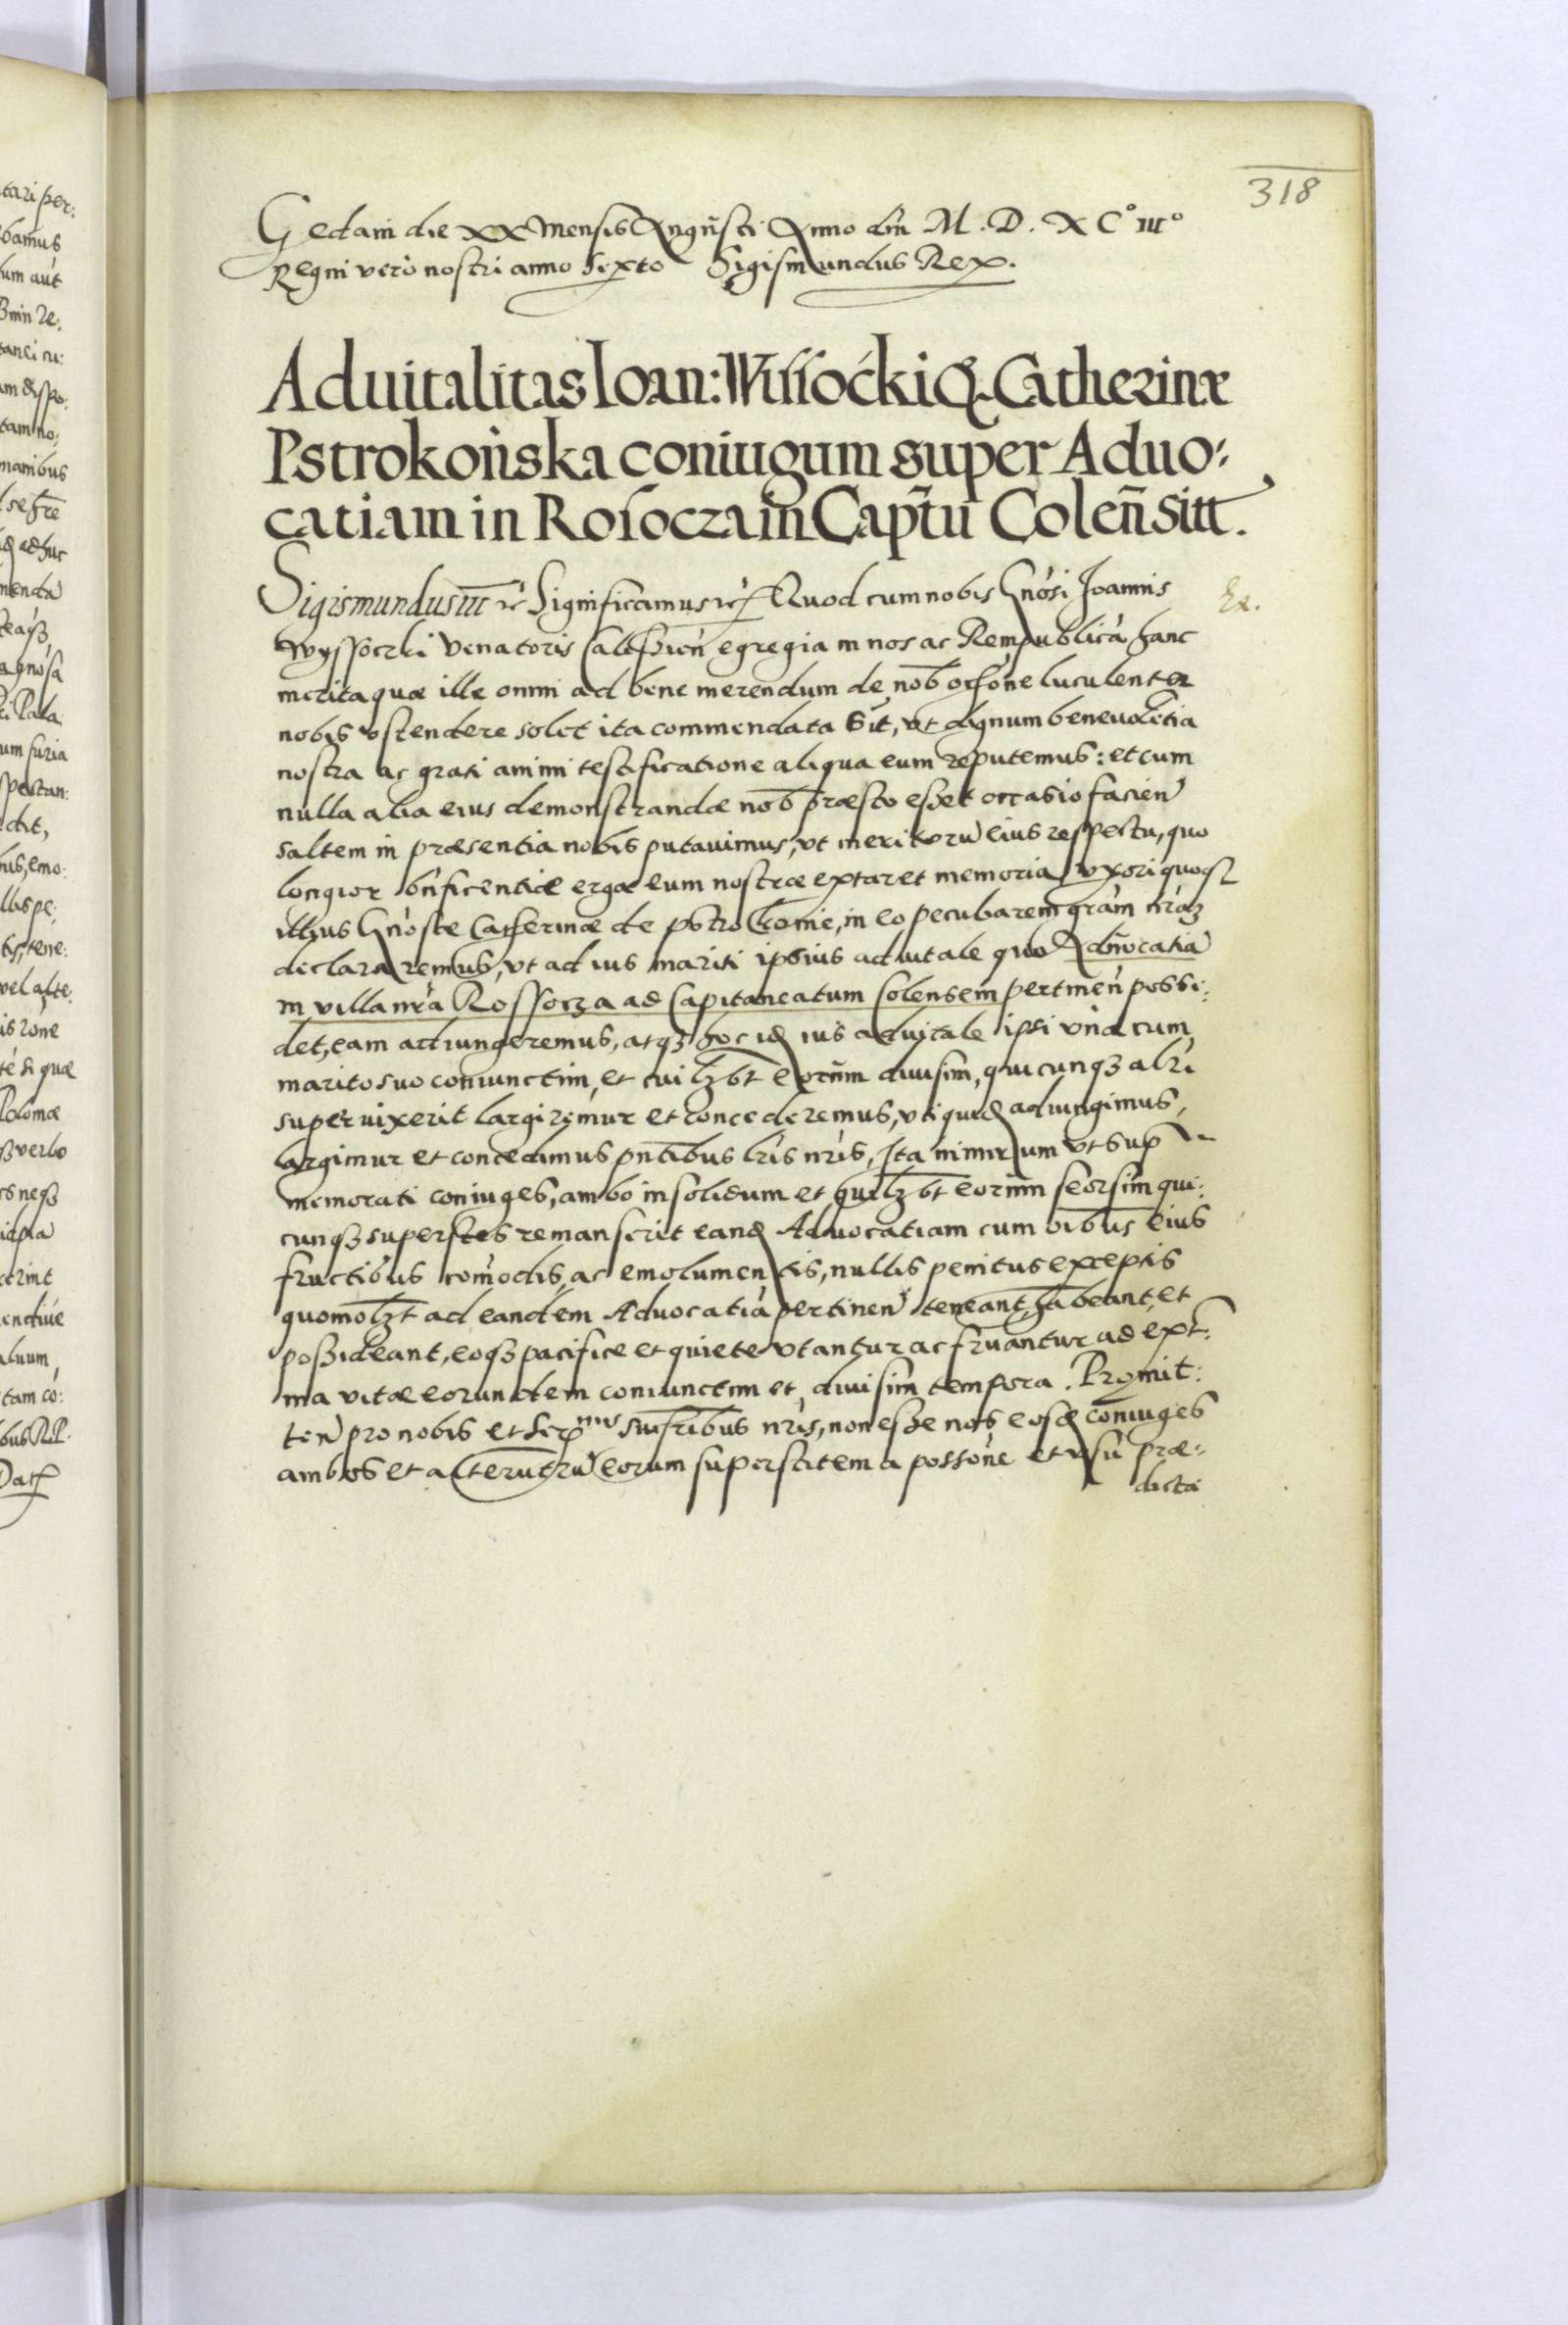 318
Gedani die XX Mensis Augusti Anno dni M. D. XC° iii°
Regni vero nostri anno Sexto Sigismundus Rex.
Aduitalitas Ioan: Wissocki & Catherinæ
Pstrokońska coniugum super Aduo:
catiam in Rosocza in Captu Coleñ sitt.
Sigismundus iii rc Significamus rc Quod cum nobis Gnosi Joannis
Ex.
Wyssoczki Venatoris Calissien egregia in nos ac Rempublicā hanc
merita quæ ille omni ad bene merendum de nob occone luculenter
nobis ostendere solet ita commendata sit, vt dignum beneuoletia
nostra ac grati animi testificatione aliqua eum reputemus: et cum
nulla alia eius demonstrandæ nob præsto esset occasio facien
saltem in præsentia nobis putauimus, vt meritorū eius respectu, quo
longior bnficentiæ erga eum nostræ extaret memoria, vxori quoq
illius Gnosæ Catherinæ de Pstrokonie, in eo peculiarem gram nraz
declararemus, vt ad ius mariti ipsius aduitale quo Aduocatiā
in villa nra Rossocza ad Capitaneatum Colensem pertinen possi:
det, eam adiungeremus, atqz hoc id ius aduitale ipsi vna cum
marito suo coniunctim, et cuilzbt eorum diuisim, quicunqz alri
superuixerit largiremur et concederemus, vti quid adiungimus,
largimur et concedimus pntibus lris nris, Ita nimirum vt sup
memorati coniuges, ambo in solidum et quilzbt eorum seorsim qui:
cunqz superstes remanserit eand Aduocatiam cum oibus eius
fructibus comodis, ac emolumentis, nullis penitus exceptis
quomolzt ad eandem Aduocatiā pertinen teneant, habeant, et
possideant, eoqz pacifice et quiete vtantur ac fruantur ad extr:
ma vitæ eorundem coniunctim et diuisim tempora. Promit:
ten pro nobis et Serᵐⁱˢ Succribus nris, non esse nos eosd coniuges
ambos et alterutrū eorum superstitem a possone et vsu præ:
dictæ